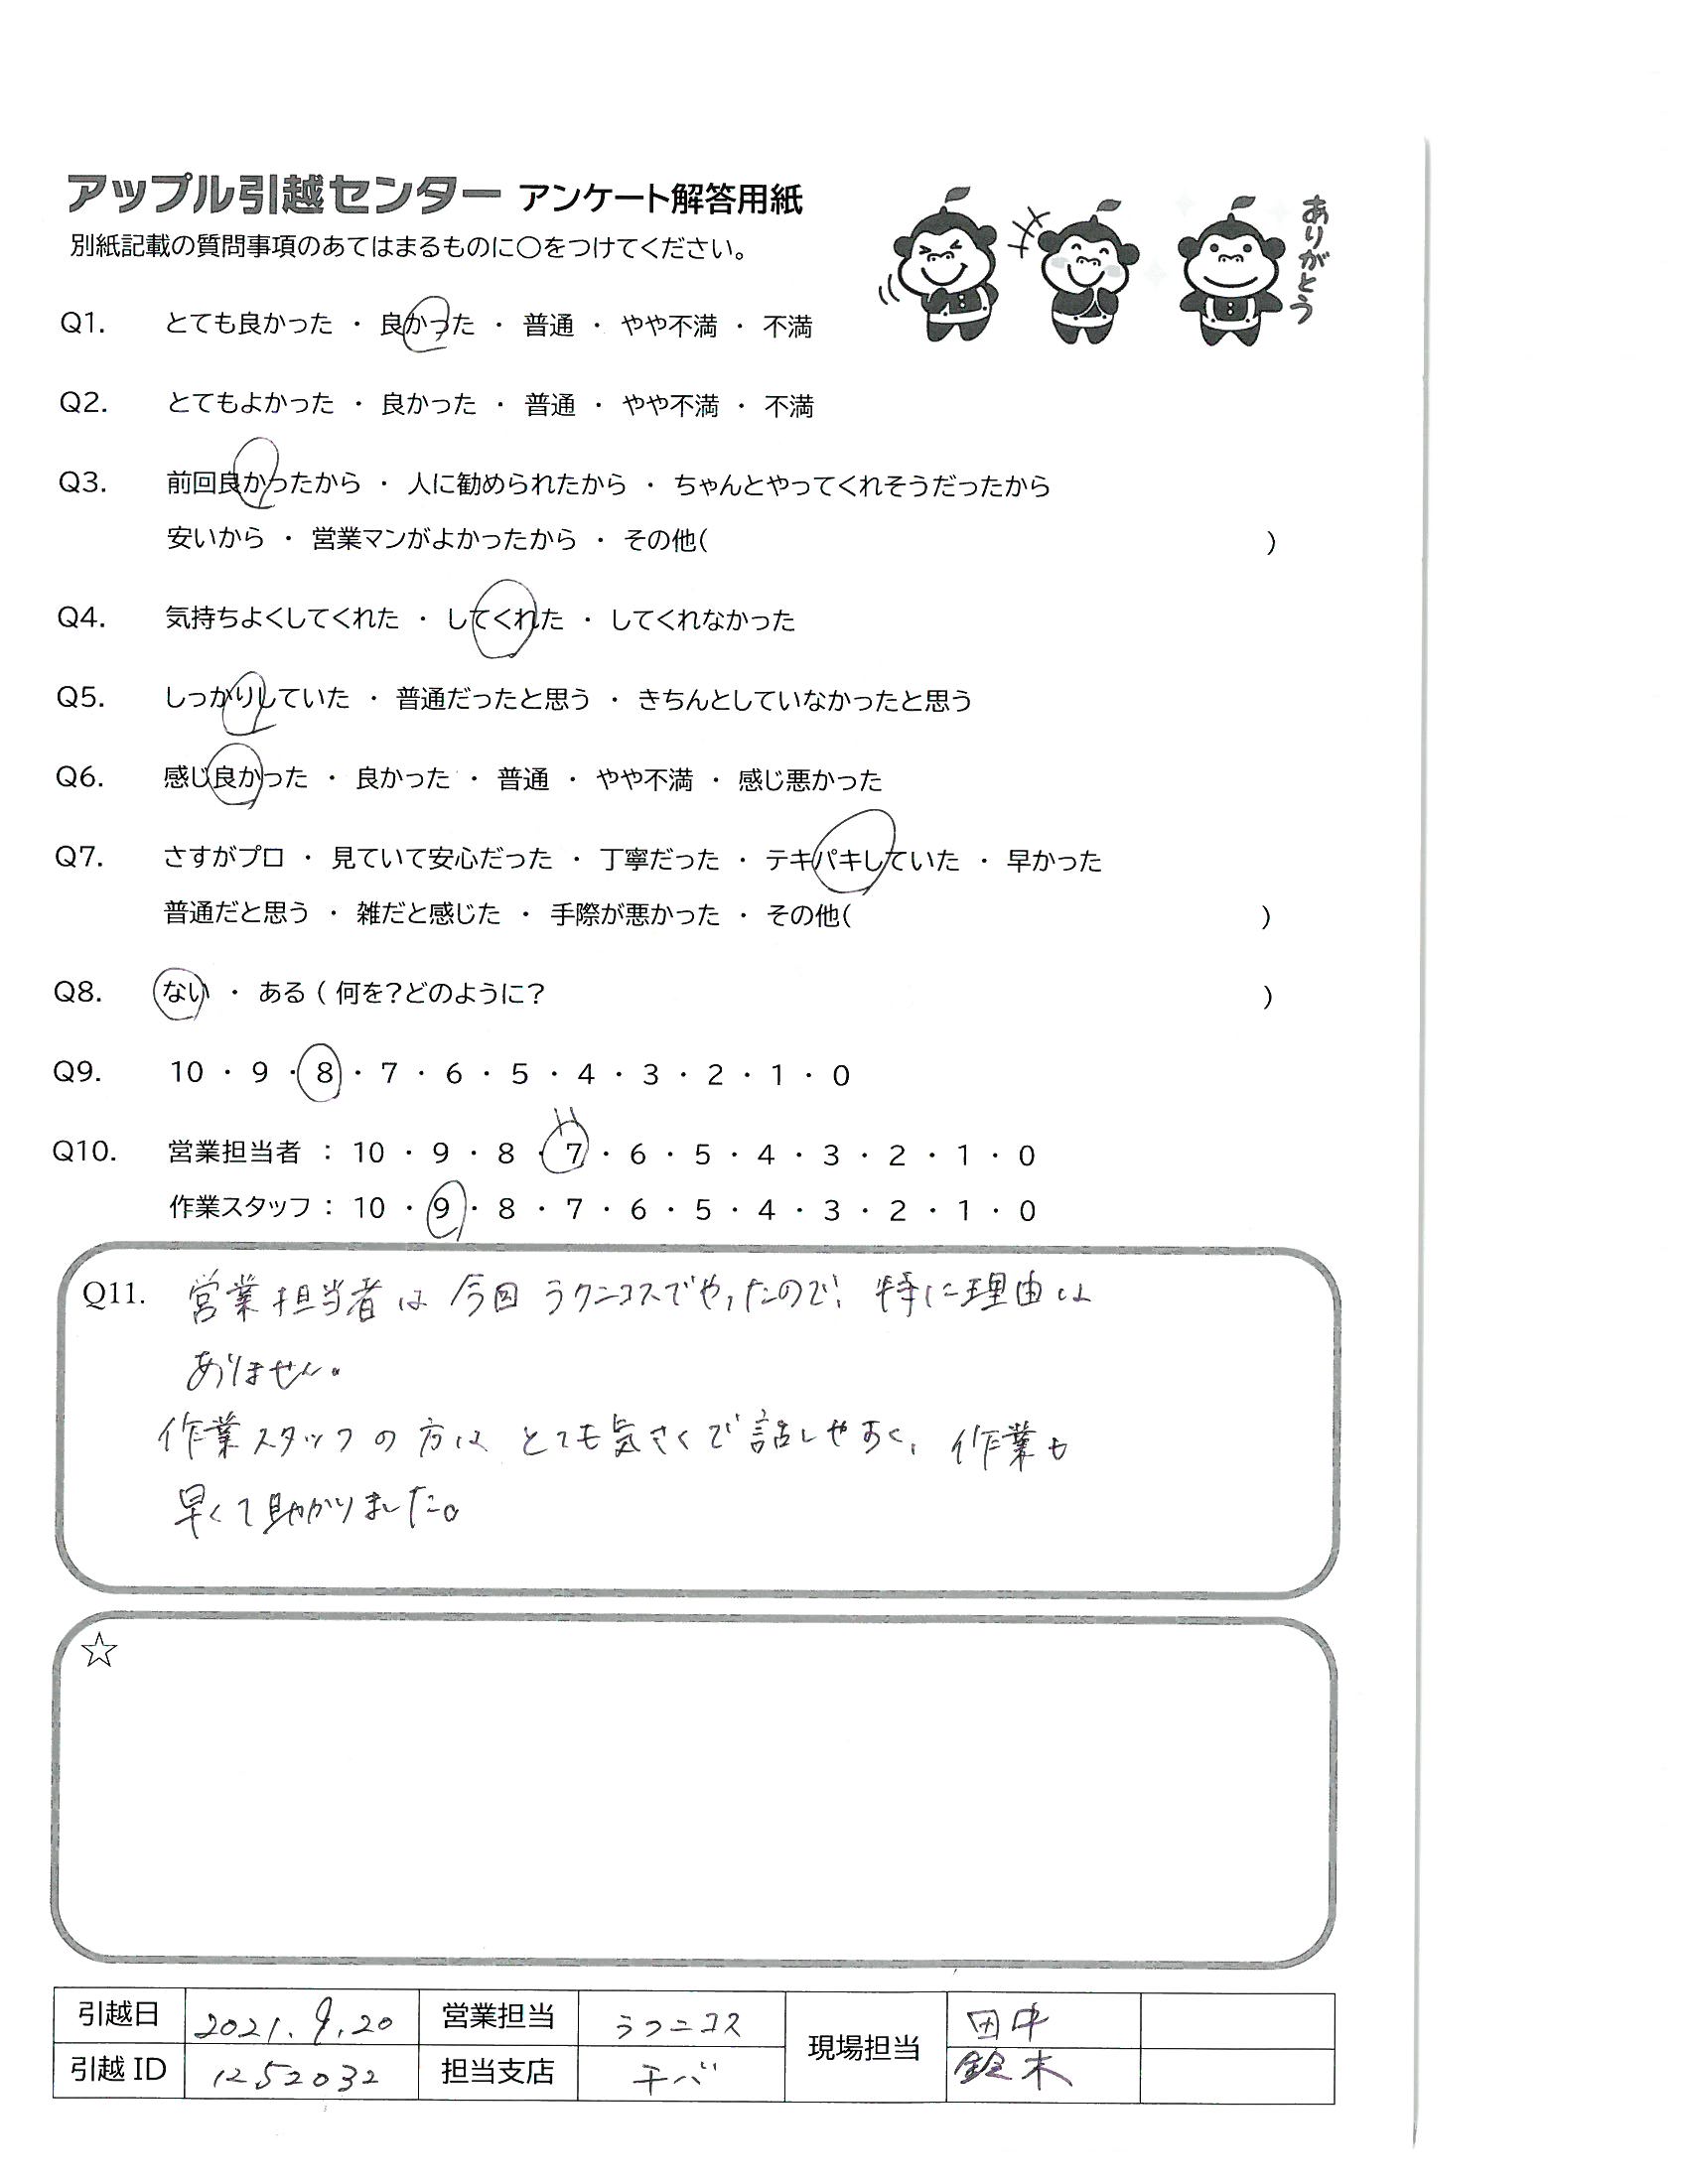 アップル引越センター アンケート解答用紙
別紙記載の質問事項のあてはまるものに○をつけてください。
ありがとう
Q1. とても良かった ・ 良かった ・ 普通 ・ やや不満 ・ 不満
Q2. とてもよかった ・ 良かった ・ 普通 ・ やや不満 ・ 不満
Q3. 前回良かったから ・ 人に勧められたから ・ ちゃんとやってくれそうだったから
安いから ・ 営業マンがよかったから ・ その他( )
Q4. 気持ちよくしてくれた ・ してくれた ・ してくれなかった
Q5. しっかりしていた ・ 普通だったと思う ・ きちんとしていなかったと思う
Q6. 感じ良かった ・ 良かった ・ 普通 ・ やや不満 ・ 感じ悪かった
Q7. さすがプロ ・ 見ていて安心だった ・ 丁寧だった ・ テキパキしていた ・ 早かった
普通だと思う ・ 雑だと感じた ・ 手際が悪かった ・ その他( )
Q8. ない ・ ある ( 何を?どのように? )
Q9. 10 ・ 9 ・ 8 ・ 7 ・ 6 ・ 5 ・ 4 ・ 3 ・ 2 ・ 1 ・ 0
Q10. 営業担当者 : 10 ・ 9 ・ 8 ・ 7 ・ 6 ・ 5 ・ 4 ・ 3 ・ 2 ・ 1 ・ 0
作業スタッフ : 10 ・ 9 ・ 8 ・ 7 ・ 6 ・ 5 ・ 4 ・ 3 ・ 2 ・ 1 ・ 0
Q11. 営業担当者は今回ラクニコスでやったので、特に理由は
ありません。
作業スタッフの方は とても気さくで話しやすく、作業も
早くて助かりました。
☆
引越日 2021.9.20 営業担当 ラクニコス 現場担当 田中
引越 ID 1252032 担当支店 千バ 鈴木